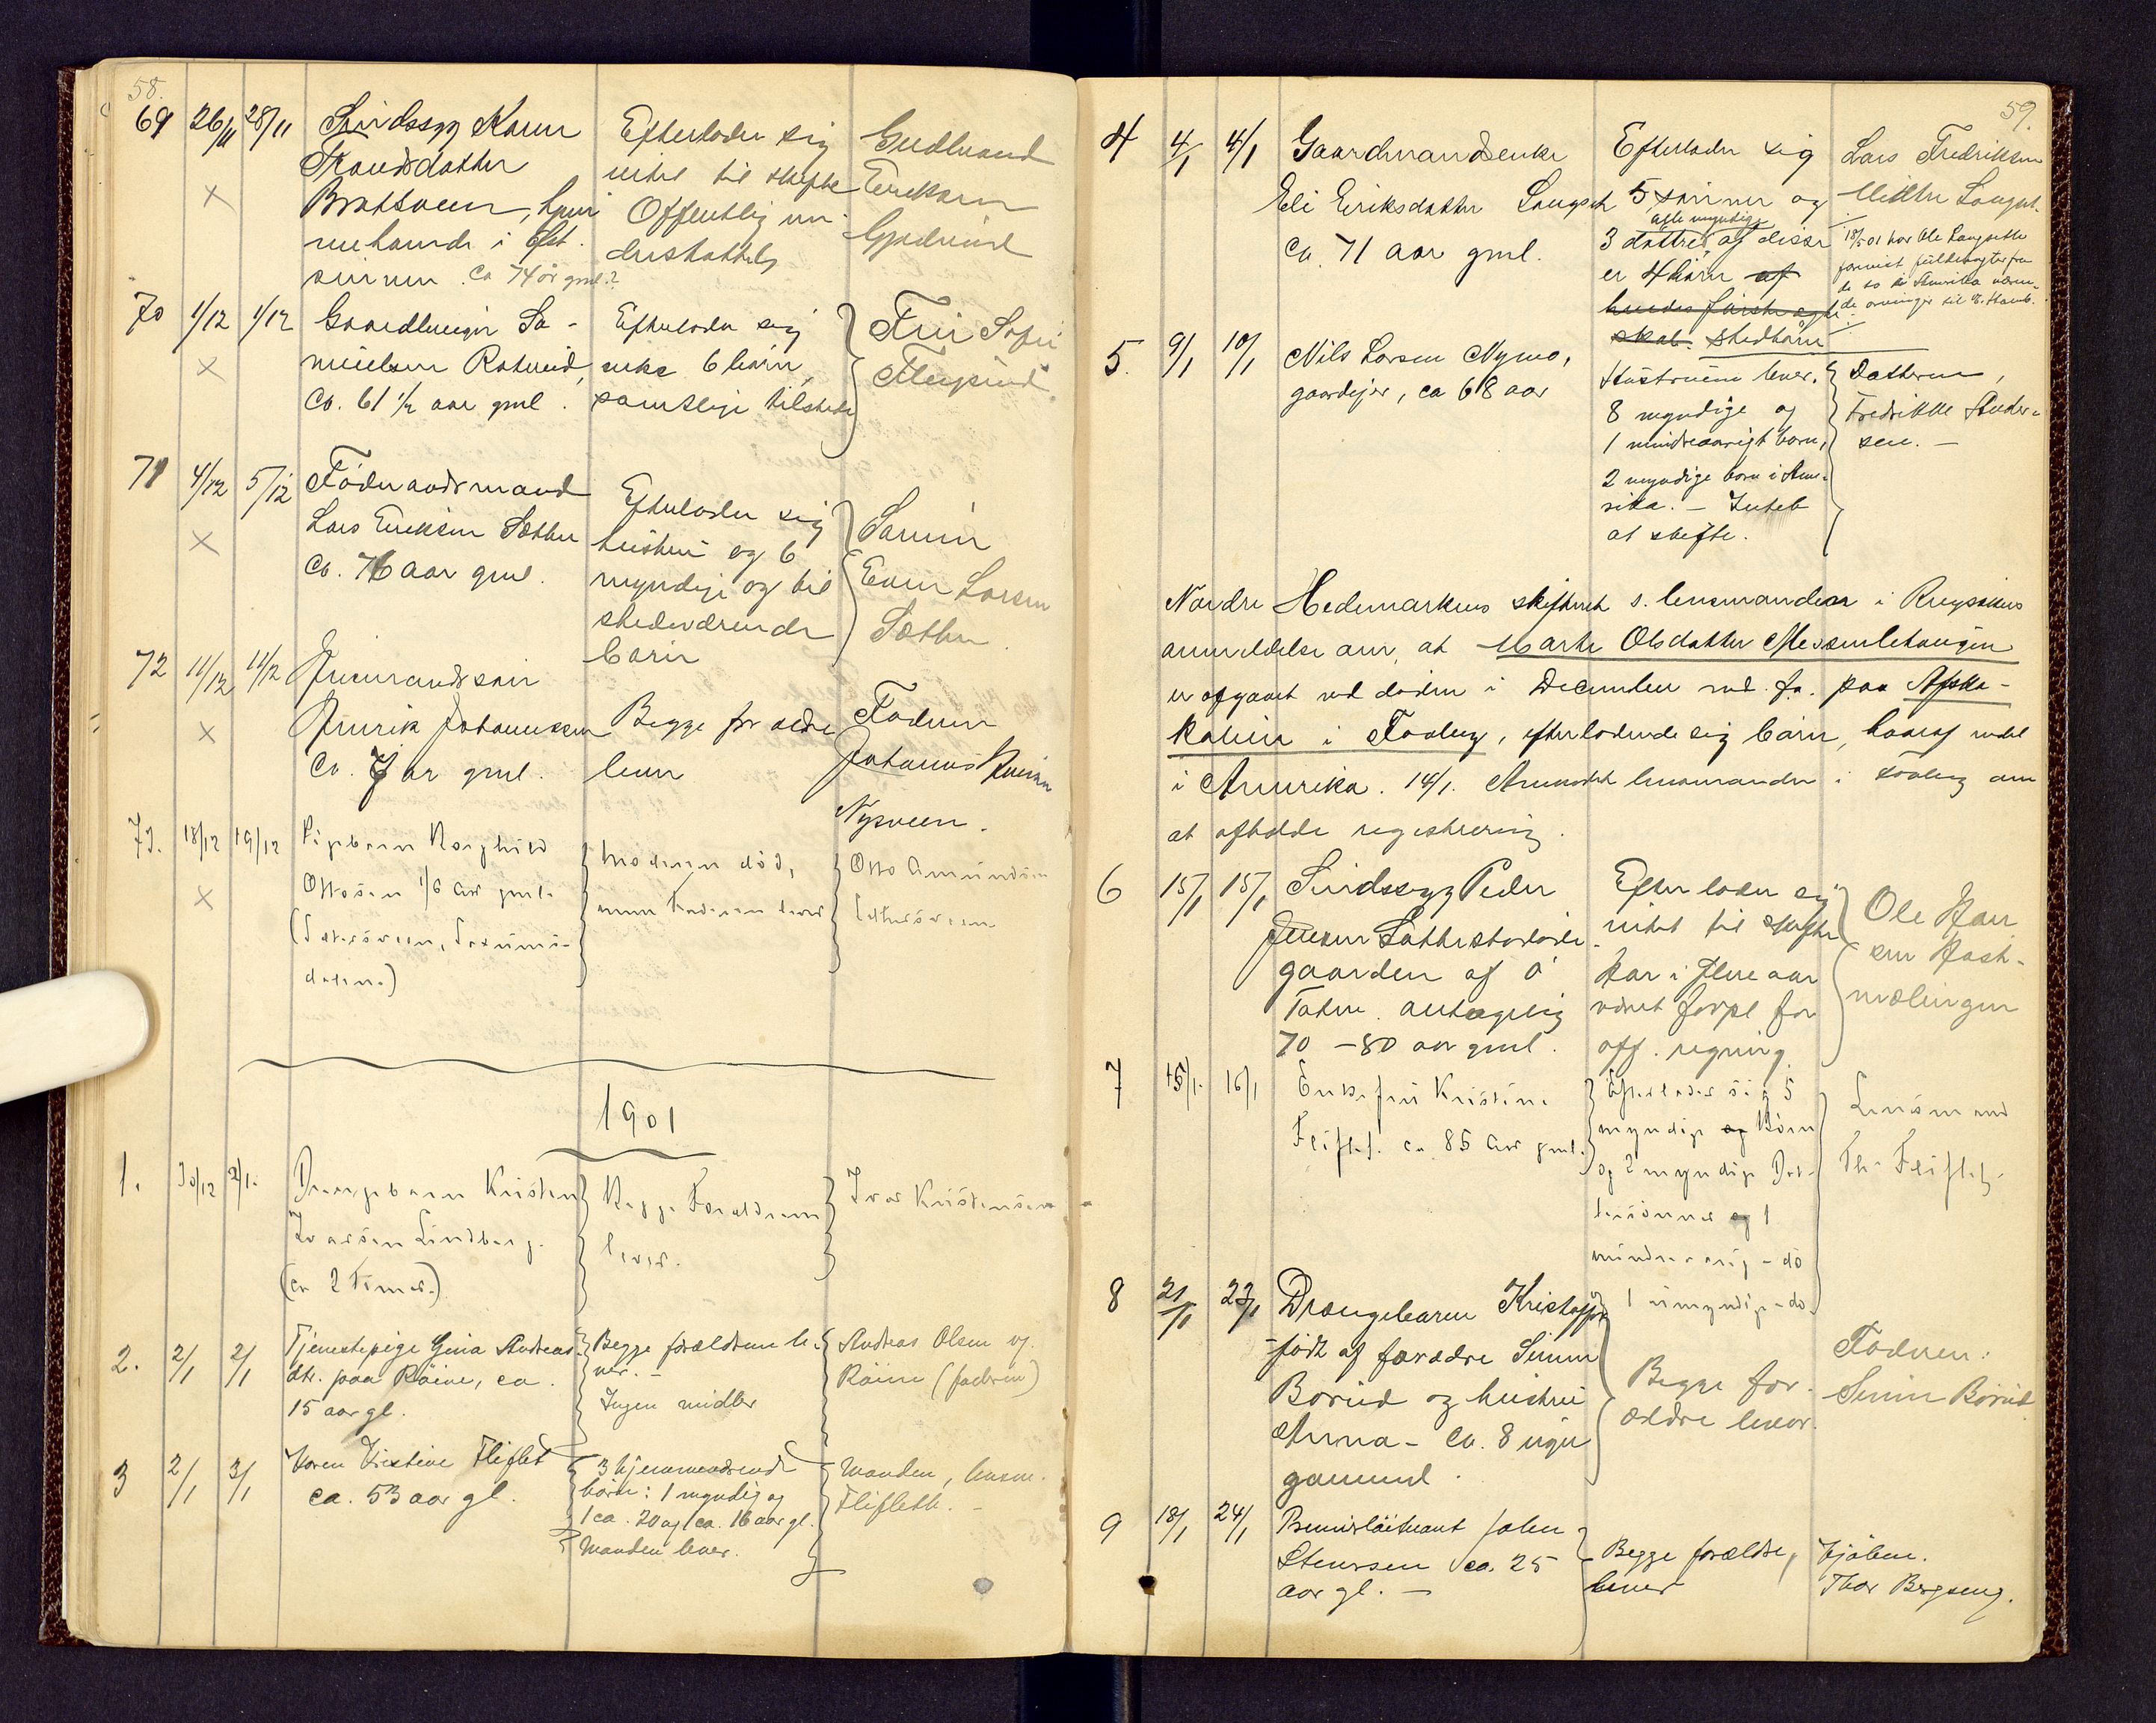 58.
69 26/11 28/11 Sindssyg Karen Efterlader sig Gudbrand
Trondsdatter intet til skifte Eriksen
Bratsveen, hjem- Offentlig un- Gjedrud
mehørende i Øst- derstøttet
sinnen. Ca 74 år gml.?
70 1/12 1/12 Gaardbruger Sa- Efterlader sig Fru Sofie
muelsen Raknerud, enke 6 børn,
ca. 61 1/2 aar gml. samtlige tilstede
71 4/12 5/12 Føderaadsmand Efterlader sig Sønnen
Lars Eriksen Sæther hustru og 6 Even Larsen
ca. 76 aar gml. myndige og til Sæther.
stedeværende
børn
72 11/12 11/12 Husmandssøn
Henrik Johannessen Begge forældre Faderen
ca. 7 ar gml. lever Johannes
Nysveen.
73. 18/12 19/12 Pigebarn Borghild Moderen død, Otto Amundsen
Ottosen 1/6 Aar gml. men Faderen lever
1901
1. 30/12 2/1. Drengebarn Kristen Begge Forældrene Ivar Kristensen
Ivarsen Lindberg. lever.
(ca 2 Timer.)
2. 2/1 2/1 Tjenestepige Gina Andreas- Begge forældrene le- Andreas Olsen
dtr. paa Røine, ca. ver. – Røine (faderen)
15 aar gl. Ingen midler
3 2/1 3/1 Karen Kristine Fliflet 3 hjemmeværende Manden, lensm.
ca. 53 aar gl. børn: 1 myndig og Flifleth. –
1 ca. 20 og 1 ca. 16 aar gl.
Manden lever.
59.
4 4/1 4/1 Gaardmandsenke Efterlader sig Lars Fredriksen
Eli Eriksdatter Langset 5 sønner og Langset.
alle myndige
ca. 71 aar gml. 3 døttre, af disse 18/5 01 har Ole Langseth
er 4 børn af
hendes første egte-
skab. stedbørn
5. 9/1 10/1 Nils Larsen Nymo, Hustruen lever. Datteren,
gaardejer, ca 68 aar 8 myndige og Fredrikke Ander-
1 mindreaarigt barn, sen. –
2 myndige børn i Ame-
rika. – Intet
at skifte.
Nordre Hedemarkens skifteret s. lensmanden i Ringsakers
anmeldelse om, at Marte Olsdatter Messenlehaugen
er afgaaet ved døden i December md. f. a. paa
i Faaberg, efterladende sig børn, hvoraf endel
i Amerika. 14/1. Anmodet lensmanden i Faaberg om
at afholde registrering.
6 15/1 15/1 Sindssyg Peder Efterlader sig Ole Han
Jensen intet til skifte sen Hast-
gaarden af Ø Har i flere aar mælingen
Toten. antagelig været forpl for
70 – 80 aar gml. off. regning.
7 15/1. 16/1 Enkefru Kristine Efterlader sig 5 Lensmand
Fliflet. ca. 85 Aar gml. myndige og Børn Th. Fliflet.
og 2 myndige Dat-
tersønner og 1
mindreaarig – do
1 umyndig – do.
8 21/1 23/1 Drengebarn Kristoffer
født af forældre Simen Begge for- Faderen:
Borud og hustru ældre lever. Simen Borud
Anna – ca. 8 uger
gammel.
9 18/1 24/1 Premierløitnant Johan Begge forældre,
Stenersen ca. 25 lever Thor Bergseng.
aar gl. –